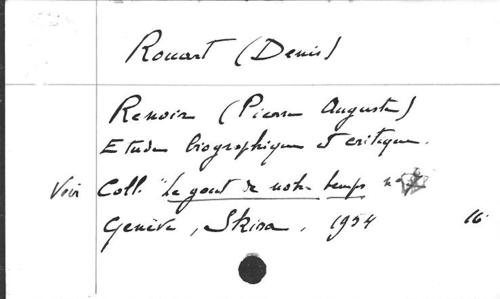 Rouart (Denis)
Renoir (Pierre Auguste)
Etude biographique et critique.
Voir Coll. "Le gout de notre temps" n°
Genève, Skira, 1954 16